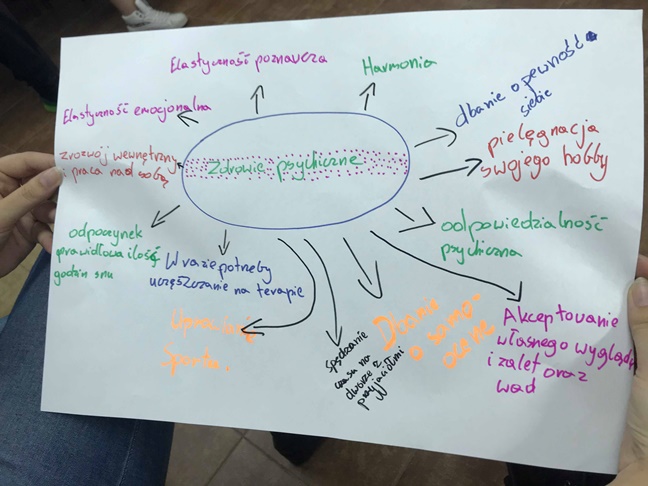 Elastyczność poznawcza
Harmonia
dbanie o pewność
siebie
Elastyczność emocjonalna
pielęgnacja
swojego hobby
zrozwój wewnętrzny
i praca nad sobą
Zdrowie psychiczne
odpowiedzialność
psychiczna
odpoczynek
prawidłowa ilość
godzin snu
W razie potrzeby
uczęszczanie na terapie
Uprawianie
sportu.
spędzanie
czasu na
dworze z
przyjaciółmi
Dbanie
o samo-
ocenę
Akceptowanie
własnego wyglądu
i zalet oraz
wad